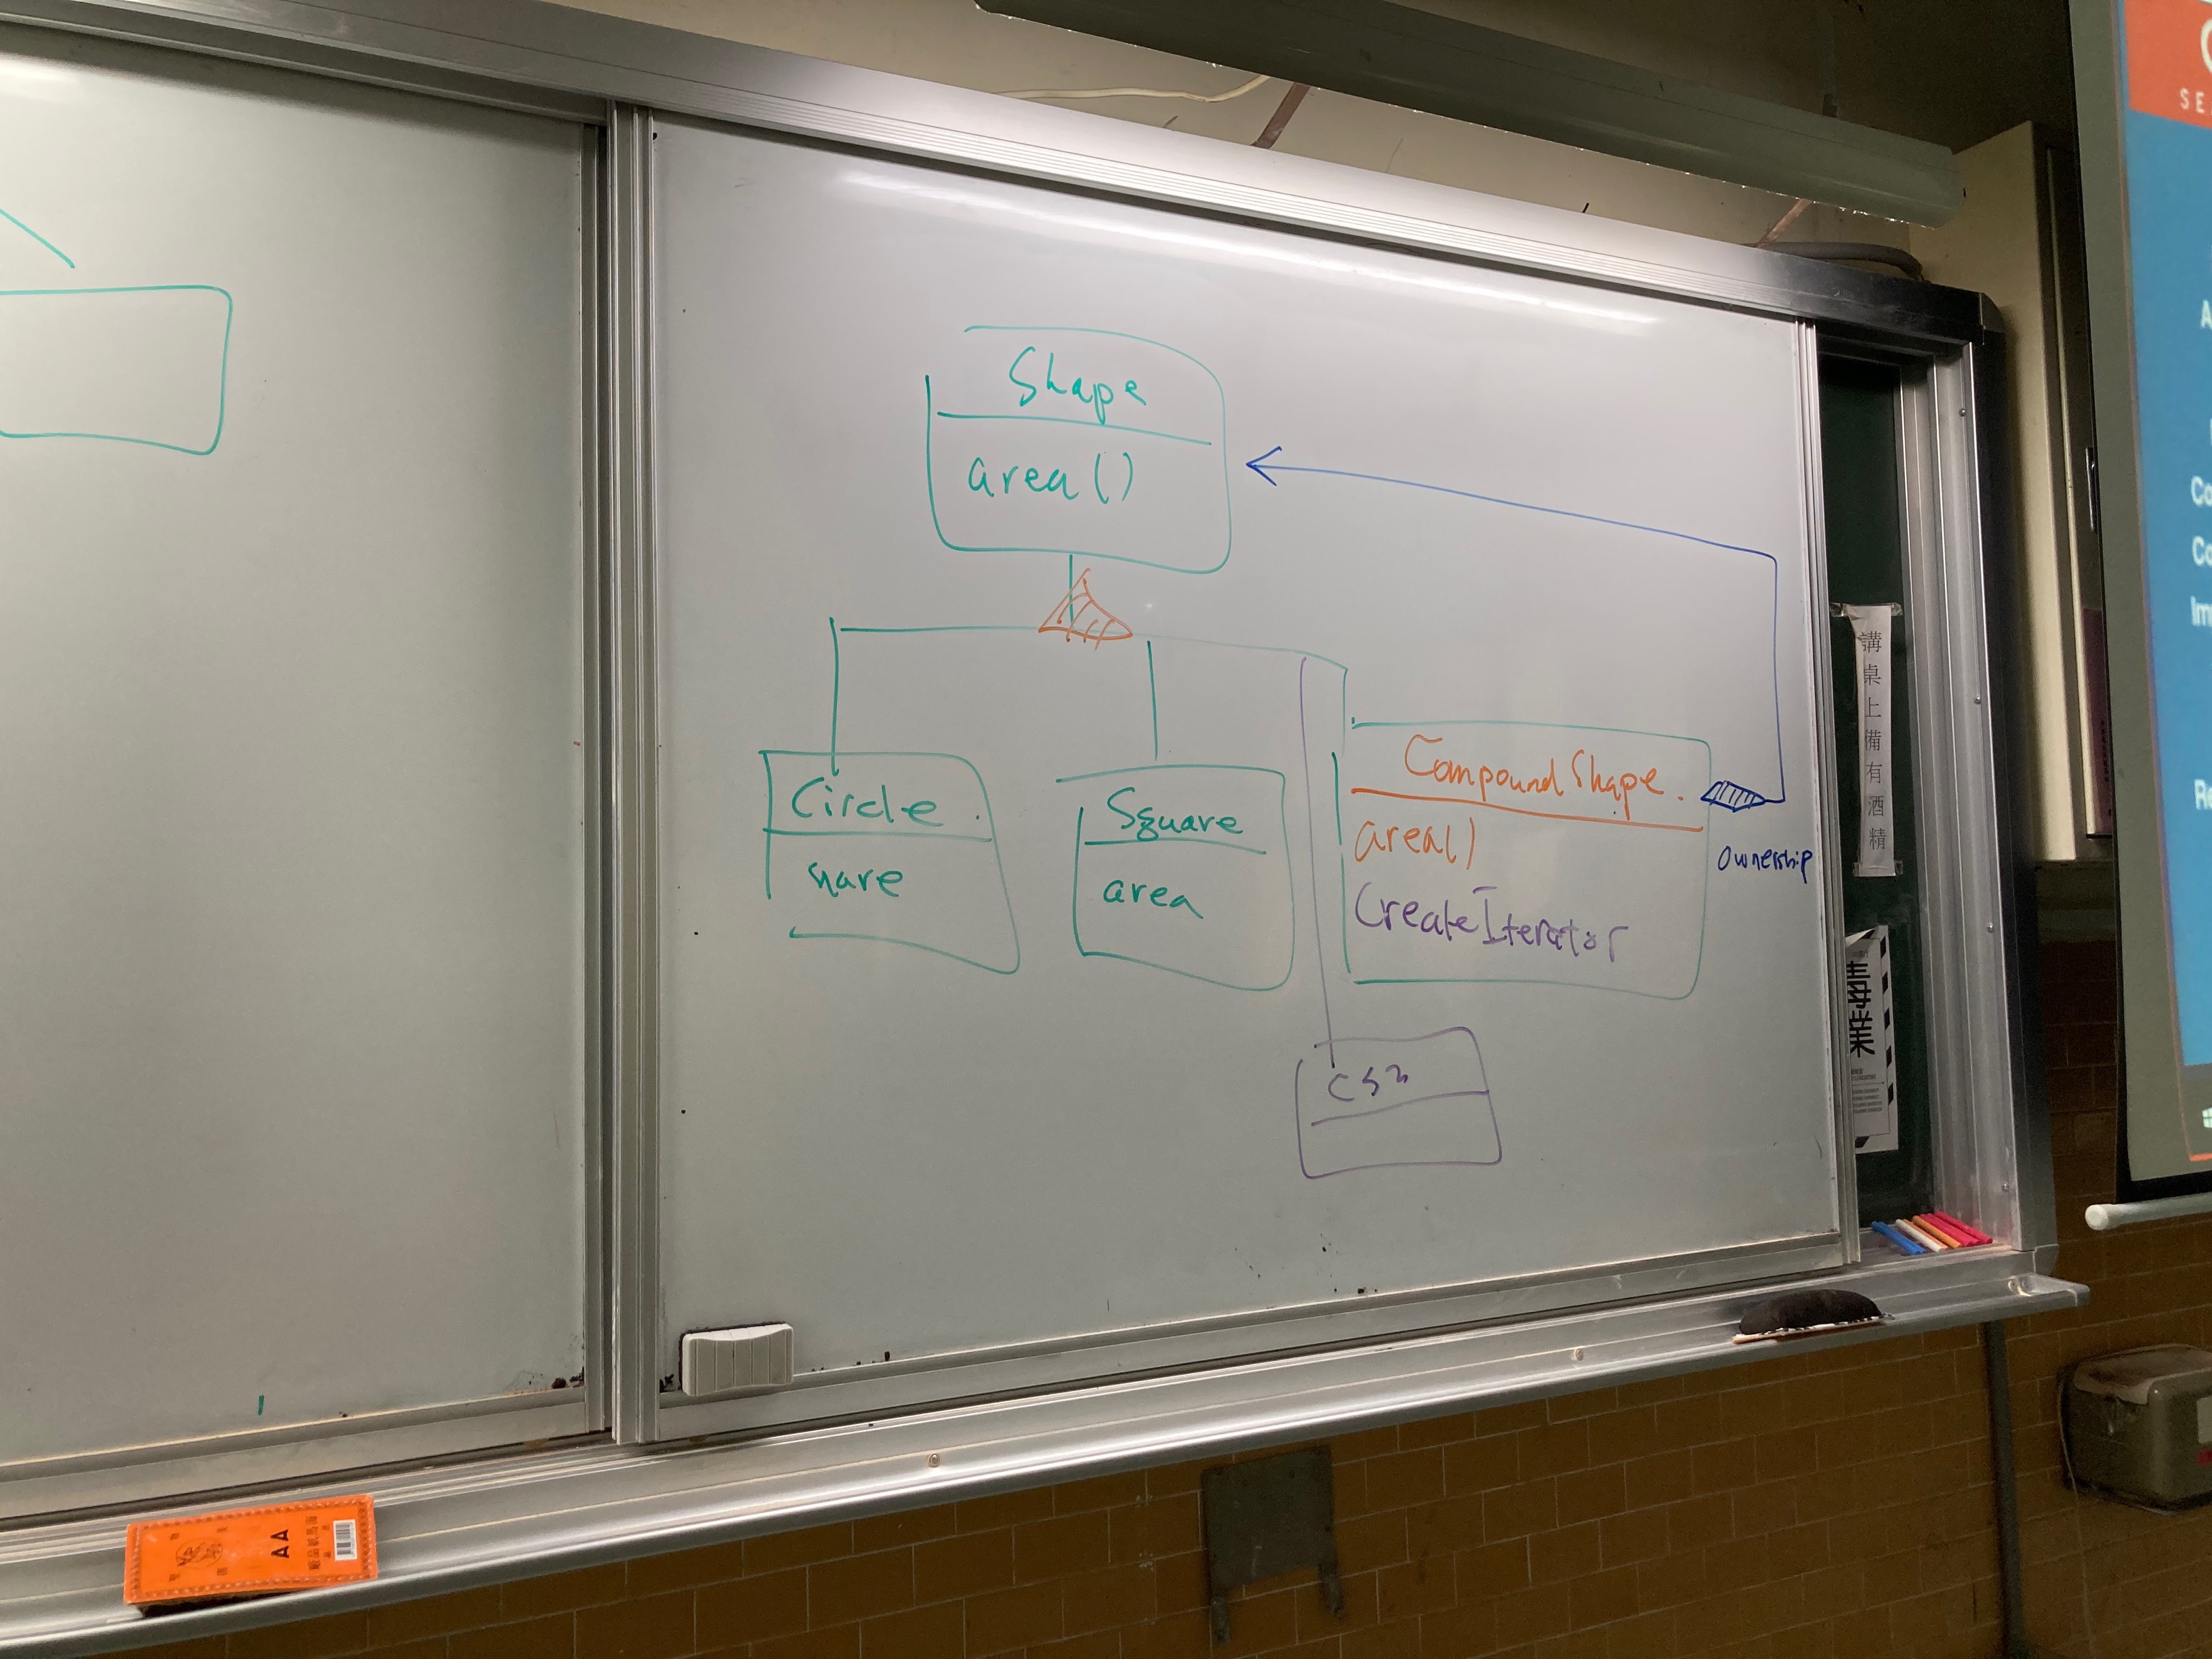 Shape
area()
Circle.
Square
area
CompoundShape.
area()
CreateIterator
Ownership
CS2
講桌上備有酒精
毒業
AA
SE
A
Co
Co
Im
Re